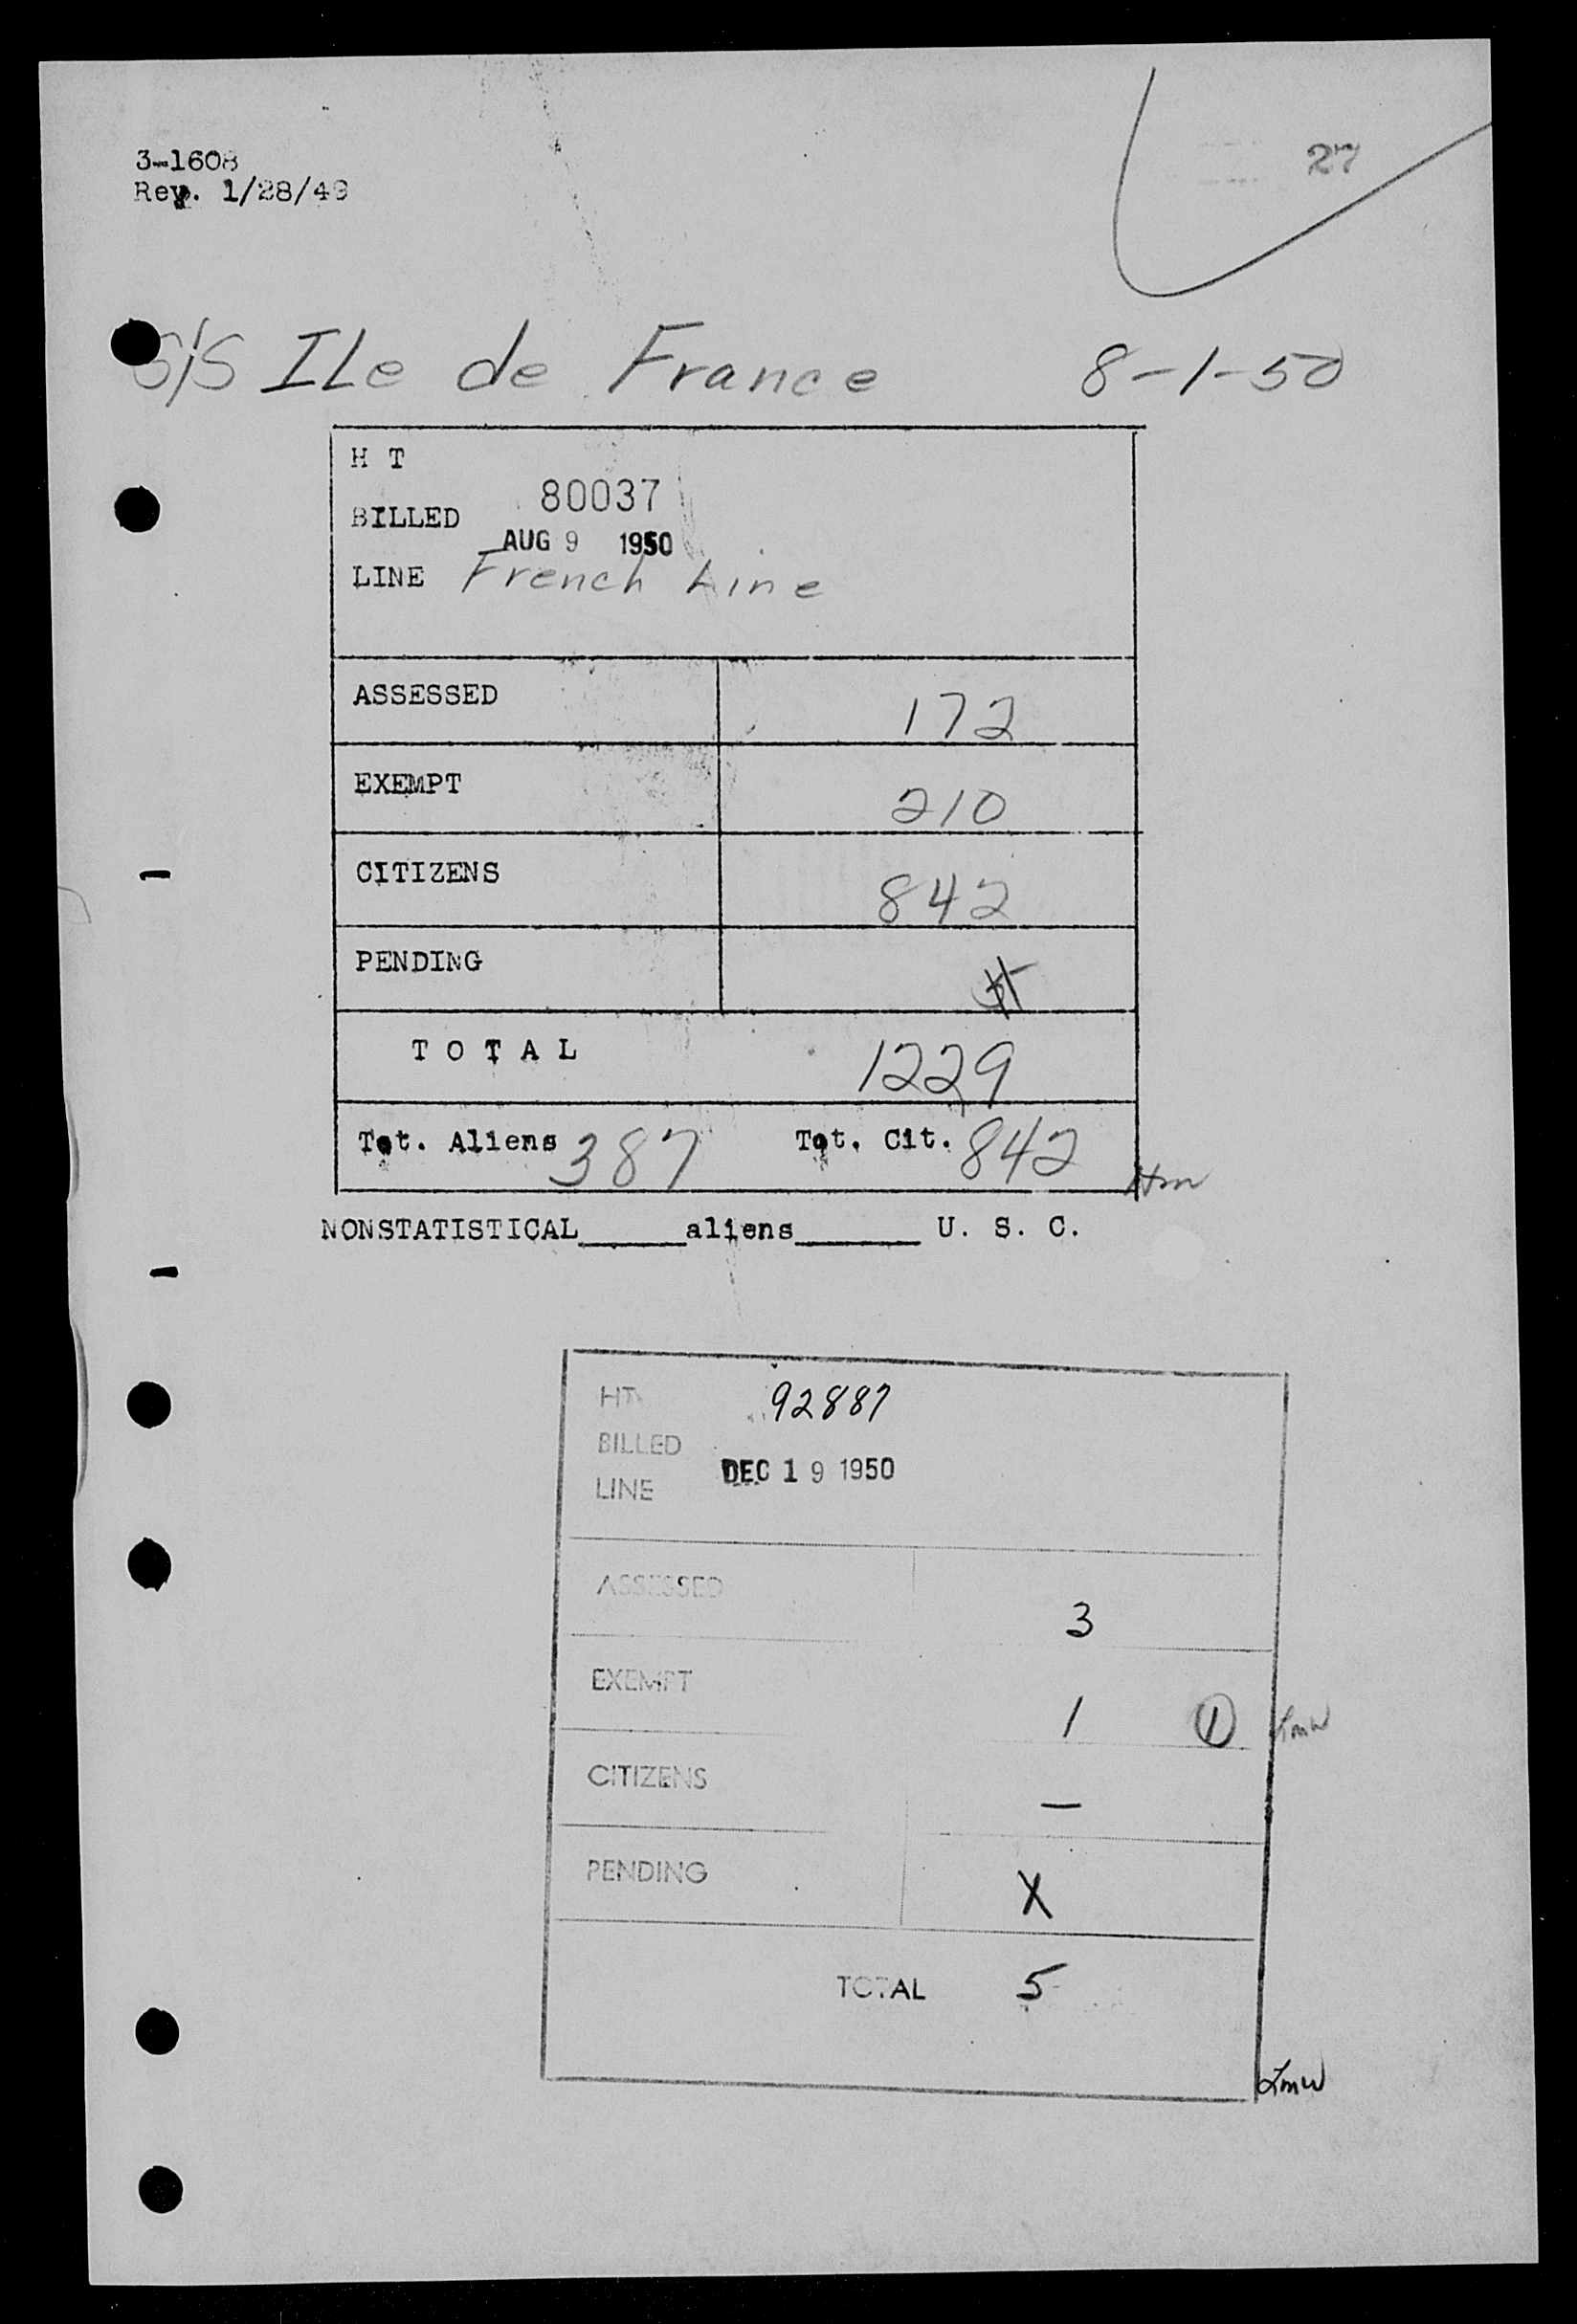 3-1608
Rev. 1/28/49
27
S/S ILe de France 8-1-50
H T 80037
BILLED AUG 9 1950
LINE French Line
ASSESSED 172
EXEMPT 210
CITIZENS 842
PENDING 5
TOTAL 1229
Tot. Aliens 387 Tot. Cit. 842
NONSTATISTICAL_____aliens______ U. S. C.
HT 92887
BILLED DEC 19 1950
LINE
ASSESSED 3
EXEMPT 1 1 Lmw
CITIZENS —
PENDING X
TOTAL 5
Lmw